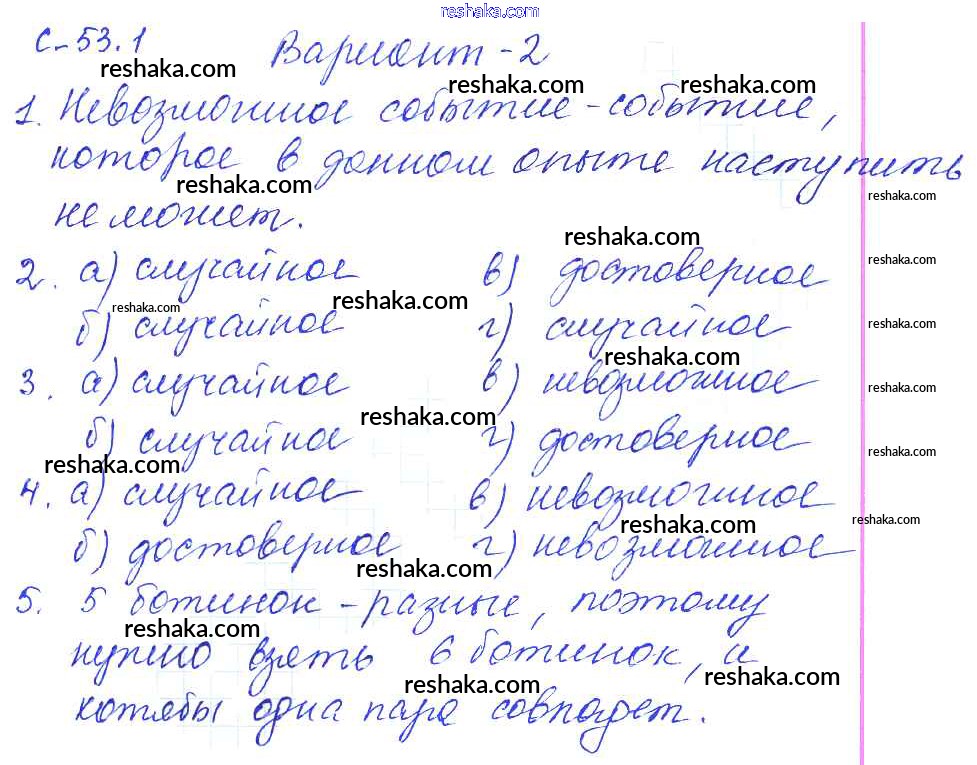 reshaka.com
С-53.1 Вариант-2
reshaka.com reshaka.com reshaka.com
1. Невозможное событие - событие,
которое в данном опыте наступить
reshaka.com reshaka.com
не может.
reshaka.com
2. а) случайное в) достоверное
reshaka.com
reshaka.com reshaka.com
б) случайное г) случайное
reshaka.com
reshaka.com
3. а) случайное в) невозможное
reshaka.com
reshaka.com
б) случайное г) достоверное
reshaka.com
reshaka.com
4. а) случайное в) невозможное
reshaka.com reshaka.com
б) достоверное г) невозможное
reshaka.com
5. 5 ботинок - разные, поэтому
reshaka.com
нужно взять 6 ботинок, и
reshaka.com reshaka.com
хотябы одна пара совпадет.